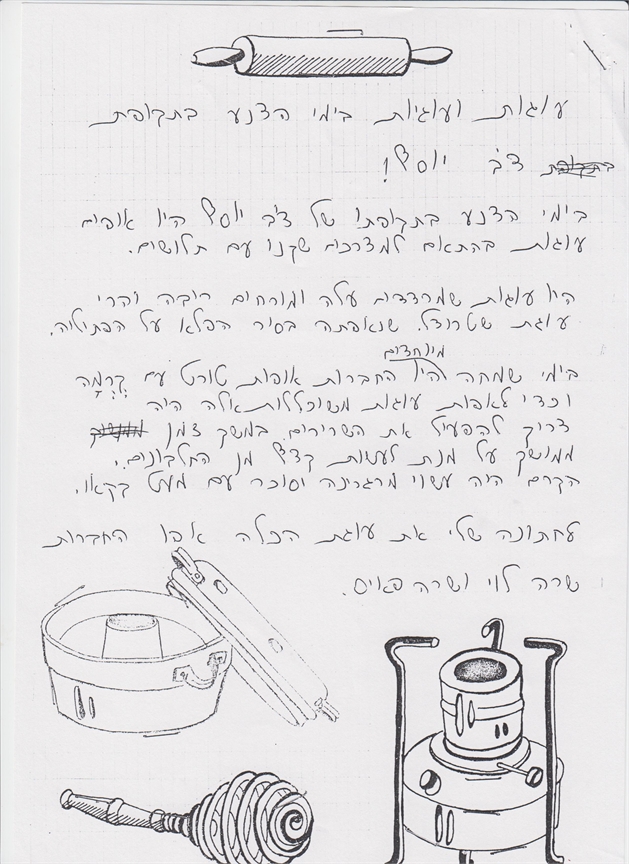 עוגות ועוגיות בימי הצנע בתקופת
דב יוסף!
בימי הצנע בתקופתו של דב יוסף היו אופים
עוגות בהתאם למצרכים שקנו עם תלושים.
היו עוגות שמרדדים עלה ומורחים ריבה והרי
עוגת שטרודל. שנאפתה בסיר הפלא על הפתיליה.
מיוחדים
בימי שמחה היו החברות אופות טורט עם קְרֶמָה
וכדי לאפות עוגות משוכללות אלה היה
צריך להפעיל את השרירים. במשך זמן
ממושך על מנת לעשות קצף מן החלבונים.
הקרם היה עשוי מרגרינה וסוכר עם מעט קקאו.
לחתונה שלי את עוגת הכלה אפו החברות
שרה לוי ושרה